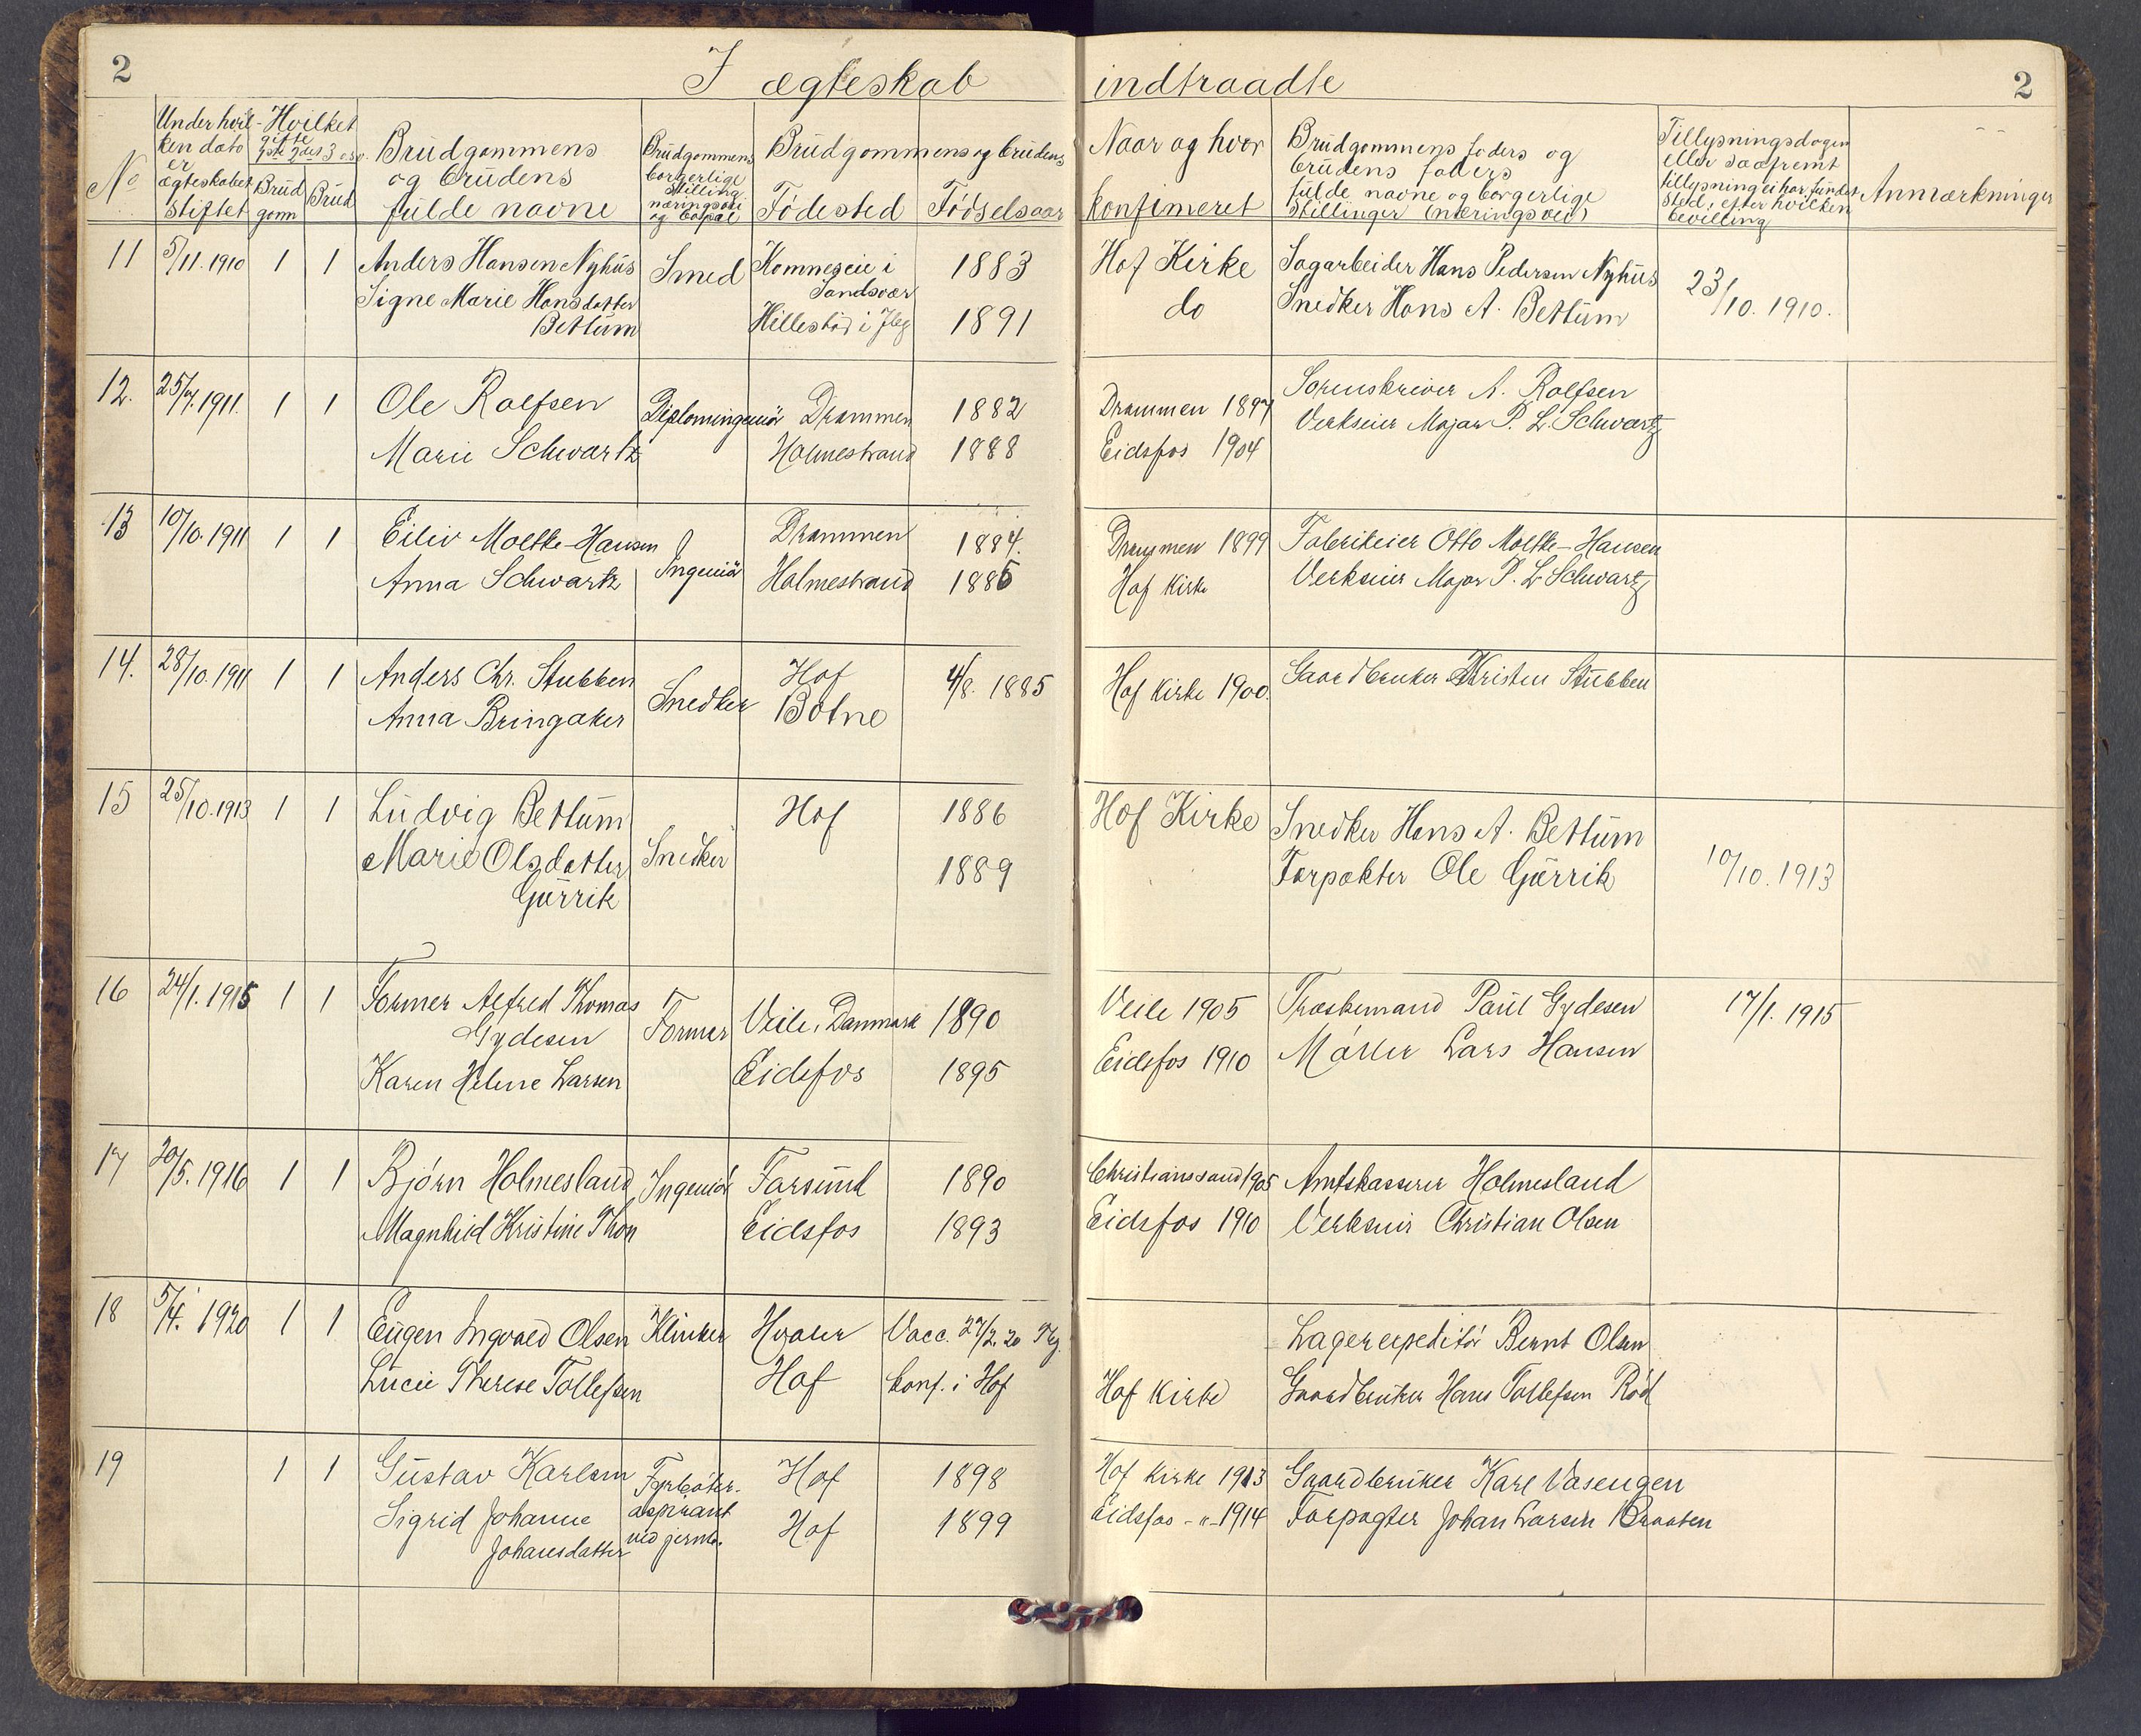 2
I ægteskab indtraadte
2
No
Under hvil-
ken dato
er
ægteskabet
stiftet
Hvilket
gifte
Brud
gom
Brud
Brudgommens
og brudens
fulde navne
Brudgommens
borgerlige
stilling
næringsvei
og bopæl
Brudgommens og brudens
Fødested
Fødselsaar
Naar og hvor
konfimeret
Brudgommens faders og
brudens faders
fulde navne og borgerlige
stillinger (næringsvei)
Tillysningsdagen
eller saafremt
tillysning ei har fundet
sted, efter hvilken
bevilling
Anmærkninger
11
5/11. 1910
1
1
Anders Hansen Nyhus
Signe Marie Hansdatter
Bettum
Smed
Komneseie i
Sandsvær
Hillestad i
1883
1891
Hof Kirke
do
Sagarbeider Hans Pedersen Nyhus
Snedker Hans A. Bettum
23/10. 1910.
12.
25/7. 1911.
1
1
Ole Rolfsen
Marie Schwartz
Diplomingeniør
Drammen
Holmestrand
1882
1888
Drammen 1897
Eidsfos 1904
Sorenskriver A. Rolfsen
Verkseier Major P. L. Schwartz
13
10/10. 1911
1
1
Eiliv Moltke-Hansen
Anna Schwartz
Ingeniør
Drammen
Holmestrand
1884.
1885
Drammen 1899
Hof Kirke
Fabrikeier Otto Moltke-Hansen
Verkseier Major P. L Schwartz
14.
28/10. 1911
1
1
Anders Chr. Stubben
Anna Bringaker
Snedker
Hof
Botne
4/8. 1885
Hof Kirke 1900.
Gaardbruker Kristen Stubben
15
25/10. 1913
1
1
Ludvig Bettum
Marie Olsdatter
Gurrik
Snedker
Hof
1886
1889
Hof Kirke
Snedker Hans A. Bettum
Forpakter Ole Gurrik
10/10. 1913
16
24/1. 1915
1
1
Former Alfred Thomas
Gydesen
Karen Helene Larsen
Former
Veile, Danmark
Eidsfos
1890
1895
Veile 1905
Eidsfos 1910
Træskemand Paul Gydesen
Møller Lars Hansen
17/1. 1915
17
20/5. 1916
1
1
Bjørn Holmesland
Magnhild Kristine Thon
Ingeniør
Farsund
Eidsfos
1890
1893
Christianssand 1905
Eidsfos 1910
Amtskasserer Holmesland
Verkseier Christian Olsen
18
5/4. 1920
1
1
Eugen Ingvald Olsen
Lucie Therese Tollefsen
Klinker
Hvaler
Hof
Vacc. 27/2. 20
konf. i Hof
Hof Kirke
Lagerexpeditør Bernt Olsen
Gaardbruker Hans Tollefsen Rød
19
1
1
Gustav Karlsen
Sigrid Johanne
Johansdatter
aspirant
ved jernb.
Hof
Hof
1898
1899
Hof Kirke 1913
Eidsfos - " - 1914
Gaardbruker Karl Vasengen
Forpagter Johan Larsen Braaten